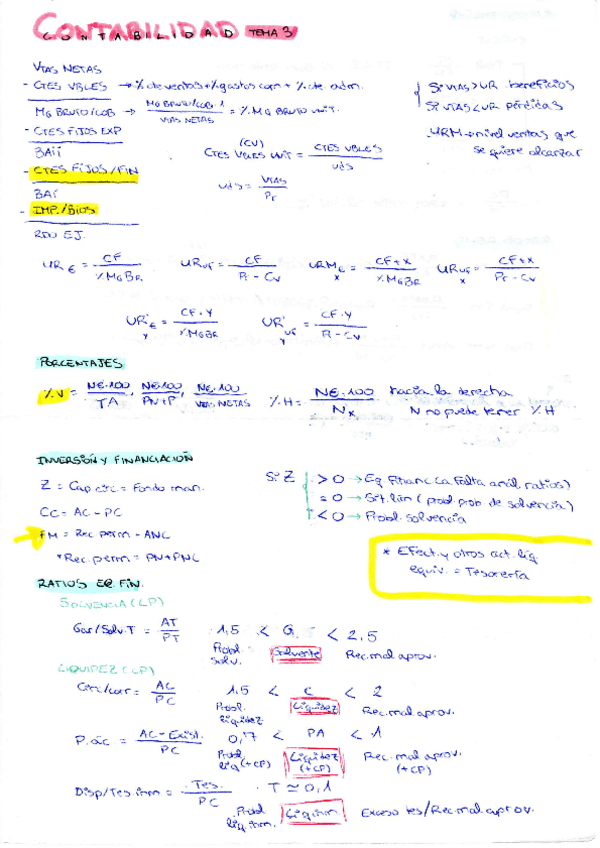 CONTABILIDAD TEMA 3
VTAS NETAS
- CTES VBLES → % cte ventas + % gastos com + % cte adm.
MG BRUTO/COB → MG BRUTO/COB · 1 / VTAS NETAS = % MG BRUTO UNIT.
- CTES FIJOS EXP
BAII
- CTES FIJOS/FIN
BAI
- IMP./BIOS
RDO EJ.
(CV)
CTES VBLES UNIT = CTES VBLES / uds
uds = VTAS / Pr
Si VTAS > UR beneficios
Si VTAS < UR pérdidas
URM → nivel ventas que
se quiere alcanzar
UR € = CF / % MG BR
UR uf = CF / Pr - Cv
URM € x = CF + X / % MG BR.
UR uf x = CF + X / Pr - Cv
UR' € y = CF · Y / % MG BR
UR' uf y = CF · Y / Pr - Cv
PORCENTAJES
% V = N€·100 / TA , N€·100 / PN+P , N€·100 / VTAS NETAS
% H = N€·100 / Nx
hacia la derecha
N no puede tener % H
INVERSIÓN Y FINANCIACIÓN
Z = Cap. circ = Fondo man.
CC = AC - PC
FM = Rec perm - ANC
* Rec. perm = PN + PNC
Si Z
> 0 → Eq Financ (a falta anál. ratios)
= 0 → Sit. lím (posd prob. de solvencia)
< 0 → Probl. solvencia
* Efect. y otros act. líq.
equiv. = Tesorería
RATIOS EQ. FIN.
SOLVENCIA (LP)
Gar/Solv. T = AT / PT
1,5 < G < 2,5
Probl. solv.
Solvente
Rec. mal aprov.
LIQUIDEZ (CP)
Circ/cor = AC / PC
1,5 < C < 2
Probl. liquidez
Liquidez
Rec. mal aprov.
P. ác = AC - Exist. / PC
0,7 < PA < 1
Probl. liq (+CP)
Liquidez (+CP)
Rec. mal aprov. (+CP)
Disp/Tes inm = Tes. / PC
T ≃ 0,1
Probl. liq. inm.
Liq inm.
Exceso tes/Rec. mal aprov.